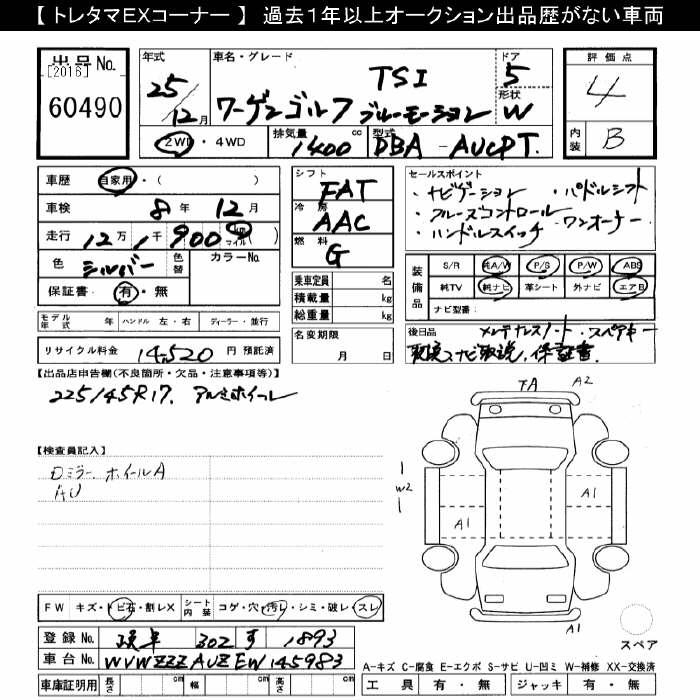 【 トレタマEXコーナー 】 過去1年以上オークション出品歴がない車両
出品No.
[2016]
60490
年式 25/12月
車名・グレード TSI
ワーゲンゴルフ ブルーモーション
ドア 5
形状 W
2WD・4WD 排気量 1400 cc 型式 DBA-AUCPT
評価点 4
内装 B
車歴 自家用・( )
車検 8年 12月
走行 12万 1千 900 km マイル ( )
色 シルバー 色替 カラーNo.
保証書 有・無
シフト FAT
冷房 AAC
燃料 G
乗車定員 名
積載量 kg
総重量 kg
セールスポイント
・ナビゲーション ・パドルシフト
・クルーズコントロール
・ハンドルスイッチ ・ワンオーナー
装備品 S/R 純A/W P/S P/W ABS
純TV 純ナビ 革シート 外ナビ エアB
ナビ型番:
モデル年式 年 ハンドル 左・右 ディーラー・並行
名変期限 月 日
リサイクル料金 14,520 円 預託済
後日品 メンテナンスノート・スペアキー
取説、ナビ取説、保証書
【出品店申告欄(不良箇所・欠品・注意事項等)】
225/45R17. アルミホイール
【検査員記入】
Dミラー、ホイールA
AU
TA A2
W2
A1
A1
A1
スペア
FW キズ・トビ石・割レX シート内装 コゲ・穴・汚レ・シミ・破レ・スレ
登録No. 岐阜 302 す 1893
車台No. WVWZZZAUZEW145983
A-キズ C-腐食 E-エクボ S-サビ U-凹ミ W-補修 XX-交換済
車庫証明用 長さ cm 幅 cm 高さ cm 工具 有・無 ジャッキ 有・無